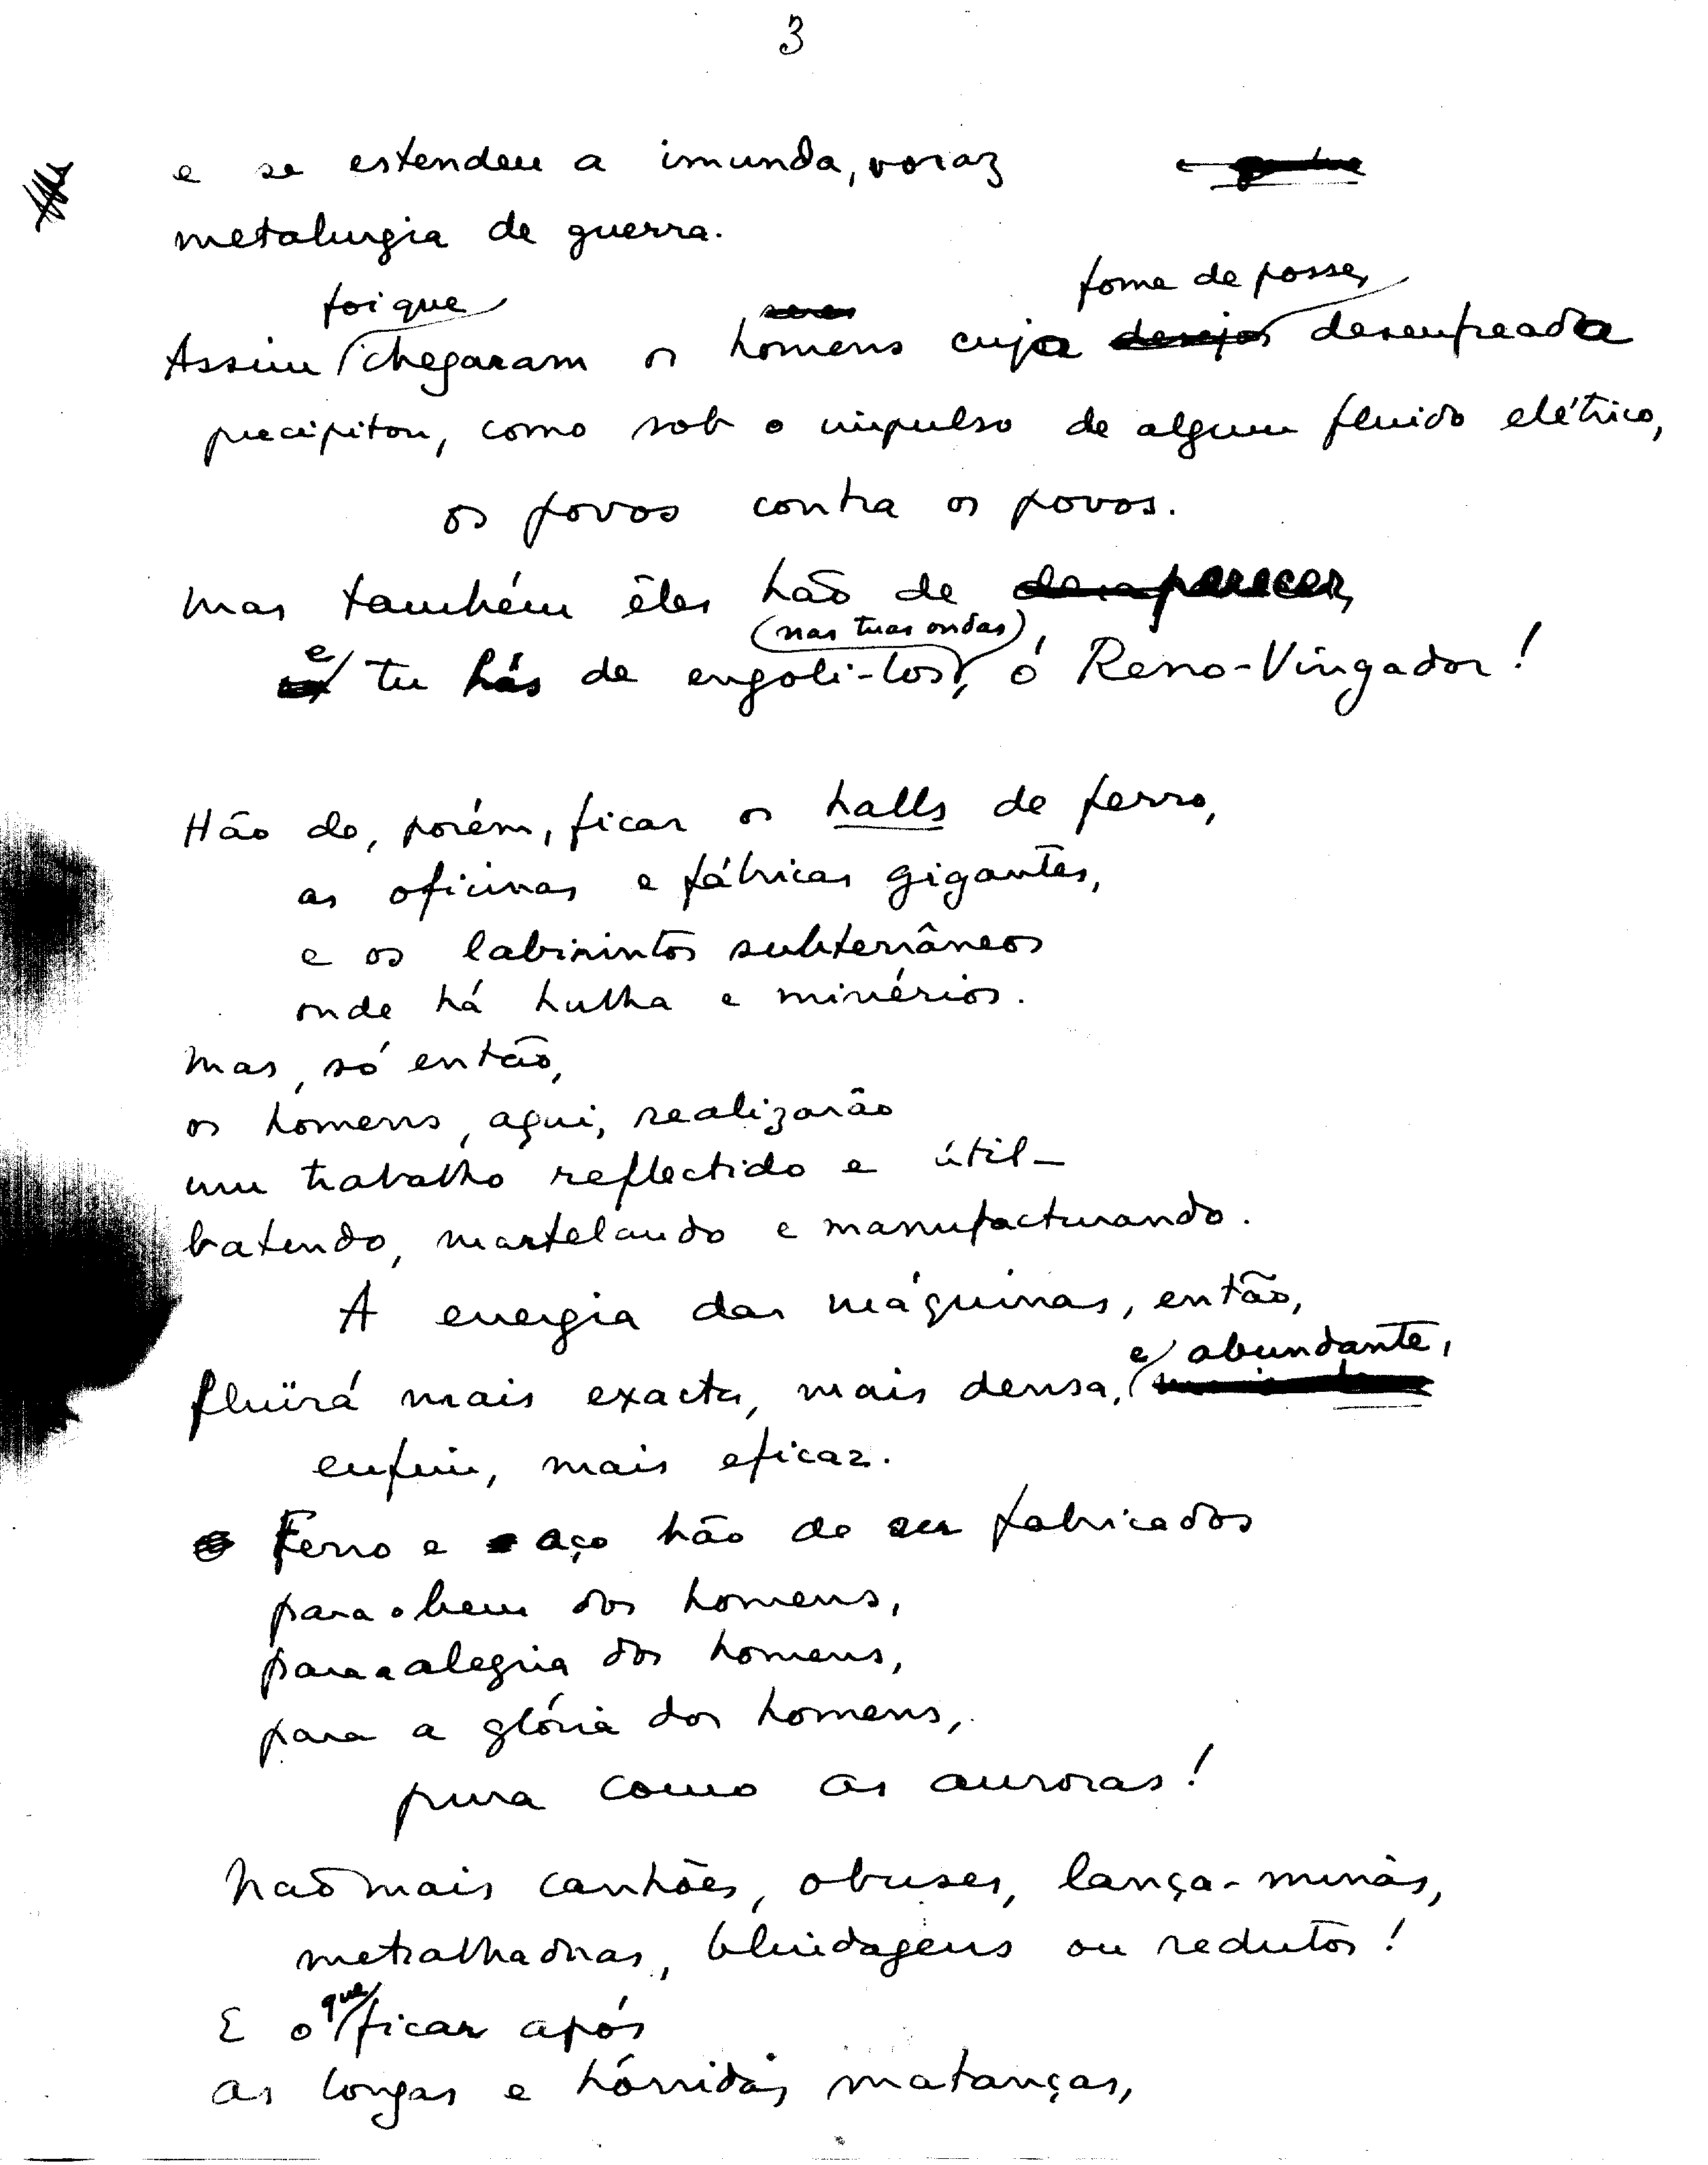 3
e se estendeu a imunda, voraz
metalurgia de guerra.
foi que fome de posse,
Assim chegaram os homens cuja desejos desenfreada
precipitou, como sob o impulso de algum fluido elétrico,
os povos contra os povos.
Mas também êles hão de desaparecer,
(nas tuas ondas),
e tu hás de engoli-los, ó Reno-Vingador!
Hão de, porém, ficar os halls de ferro,
as oficinas e fábricas gigantes,
e os labirintos subterrâneos
onde há hulha e minérios.
Mas, só então,
os homens, aqui, realizarão
um trabalho reflectido e útil –
batendo, martelando e manufacturando.
A energia das máquinas, então,
e abundante,
fluïrá mais exacta, mais densa,
enfim, mais eficaz.
Ferro e aço hão de ser fabricados
para o bem dos homens,
para a alegria dos homens,
para a glória dos homens,
pura como as auroras!
Não mais canhões, obuses, lança-minas,
metralhadoras, blindagens ou redutos!
que
E o ficar após
as longas e hórridas matanças,